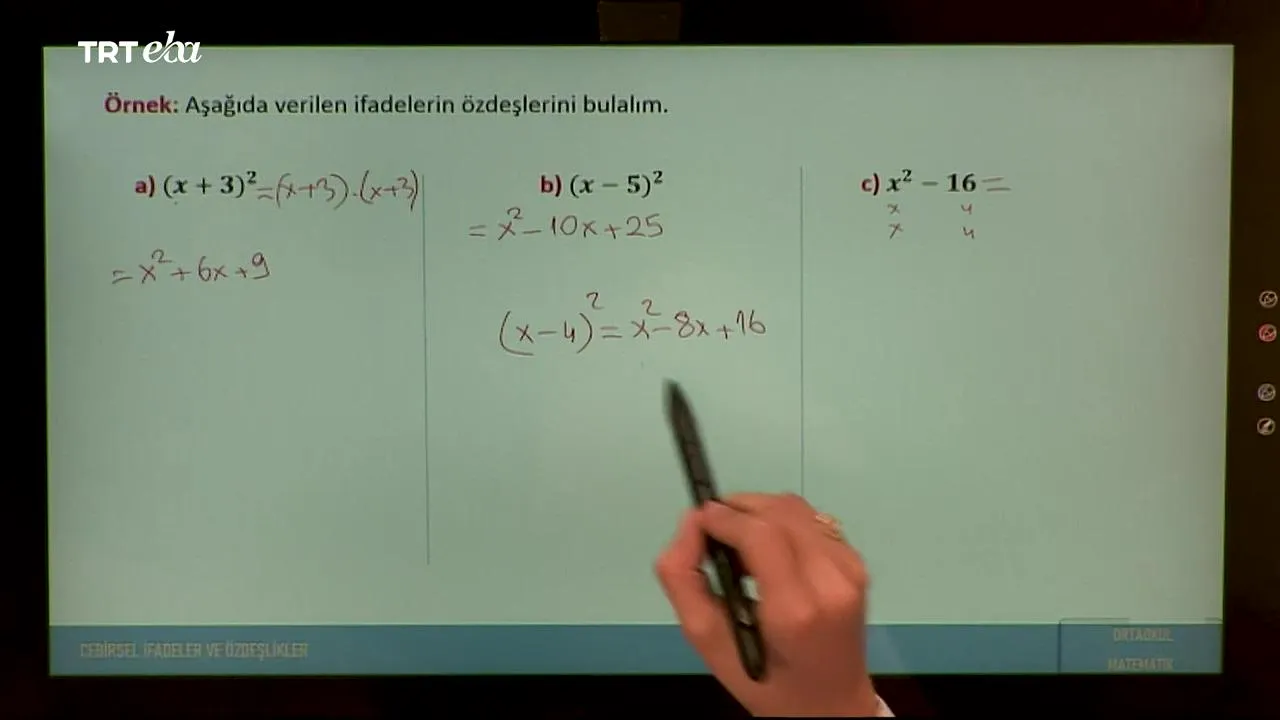 TRT eba
Örnek: Aşağıda verilen ifadelerin özdeşlerini bulalım.
a) (x + 3)² = (x+3).(x+3)
= x² + 6x + 9
b) (x − 5)²
= x² − 10x + 25
(x − 4)² = x² − 8x + 16
c) x² − 16 =
x 4
x 4
CEBİRSEL İFADELER VE ÖZDEŞLİKLER
ORTAOKUL
MATEMATİK